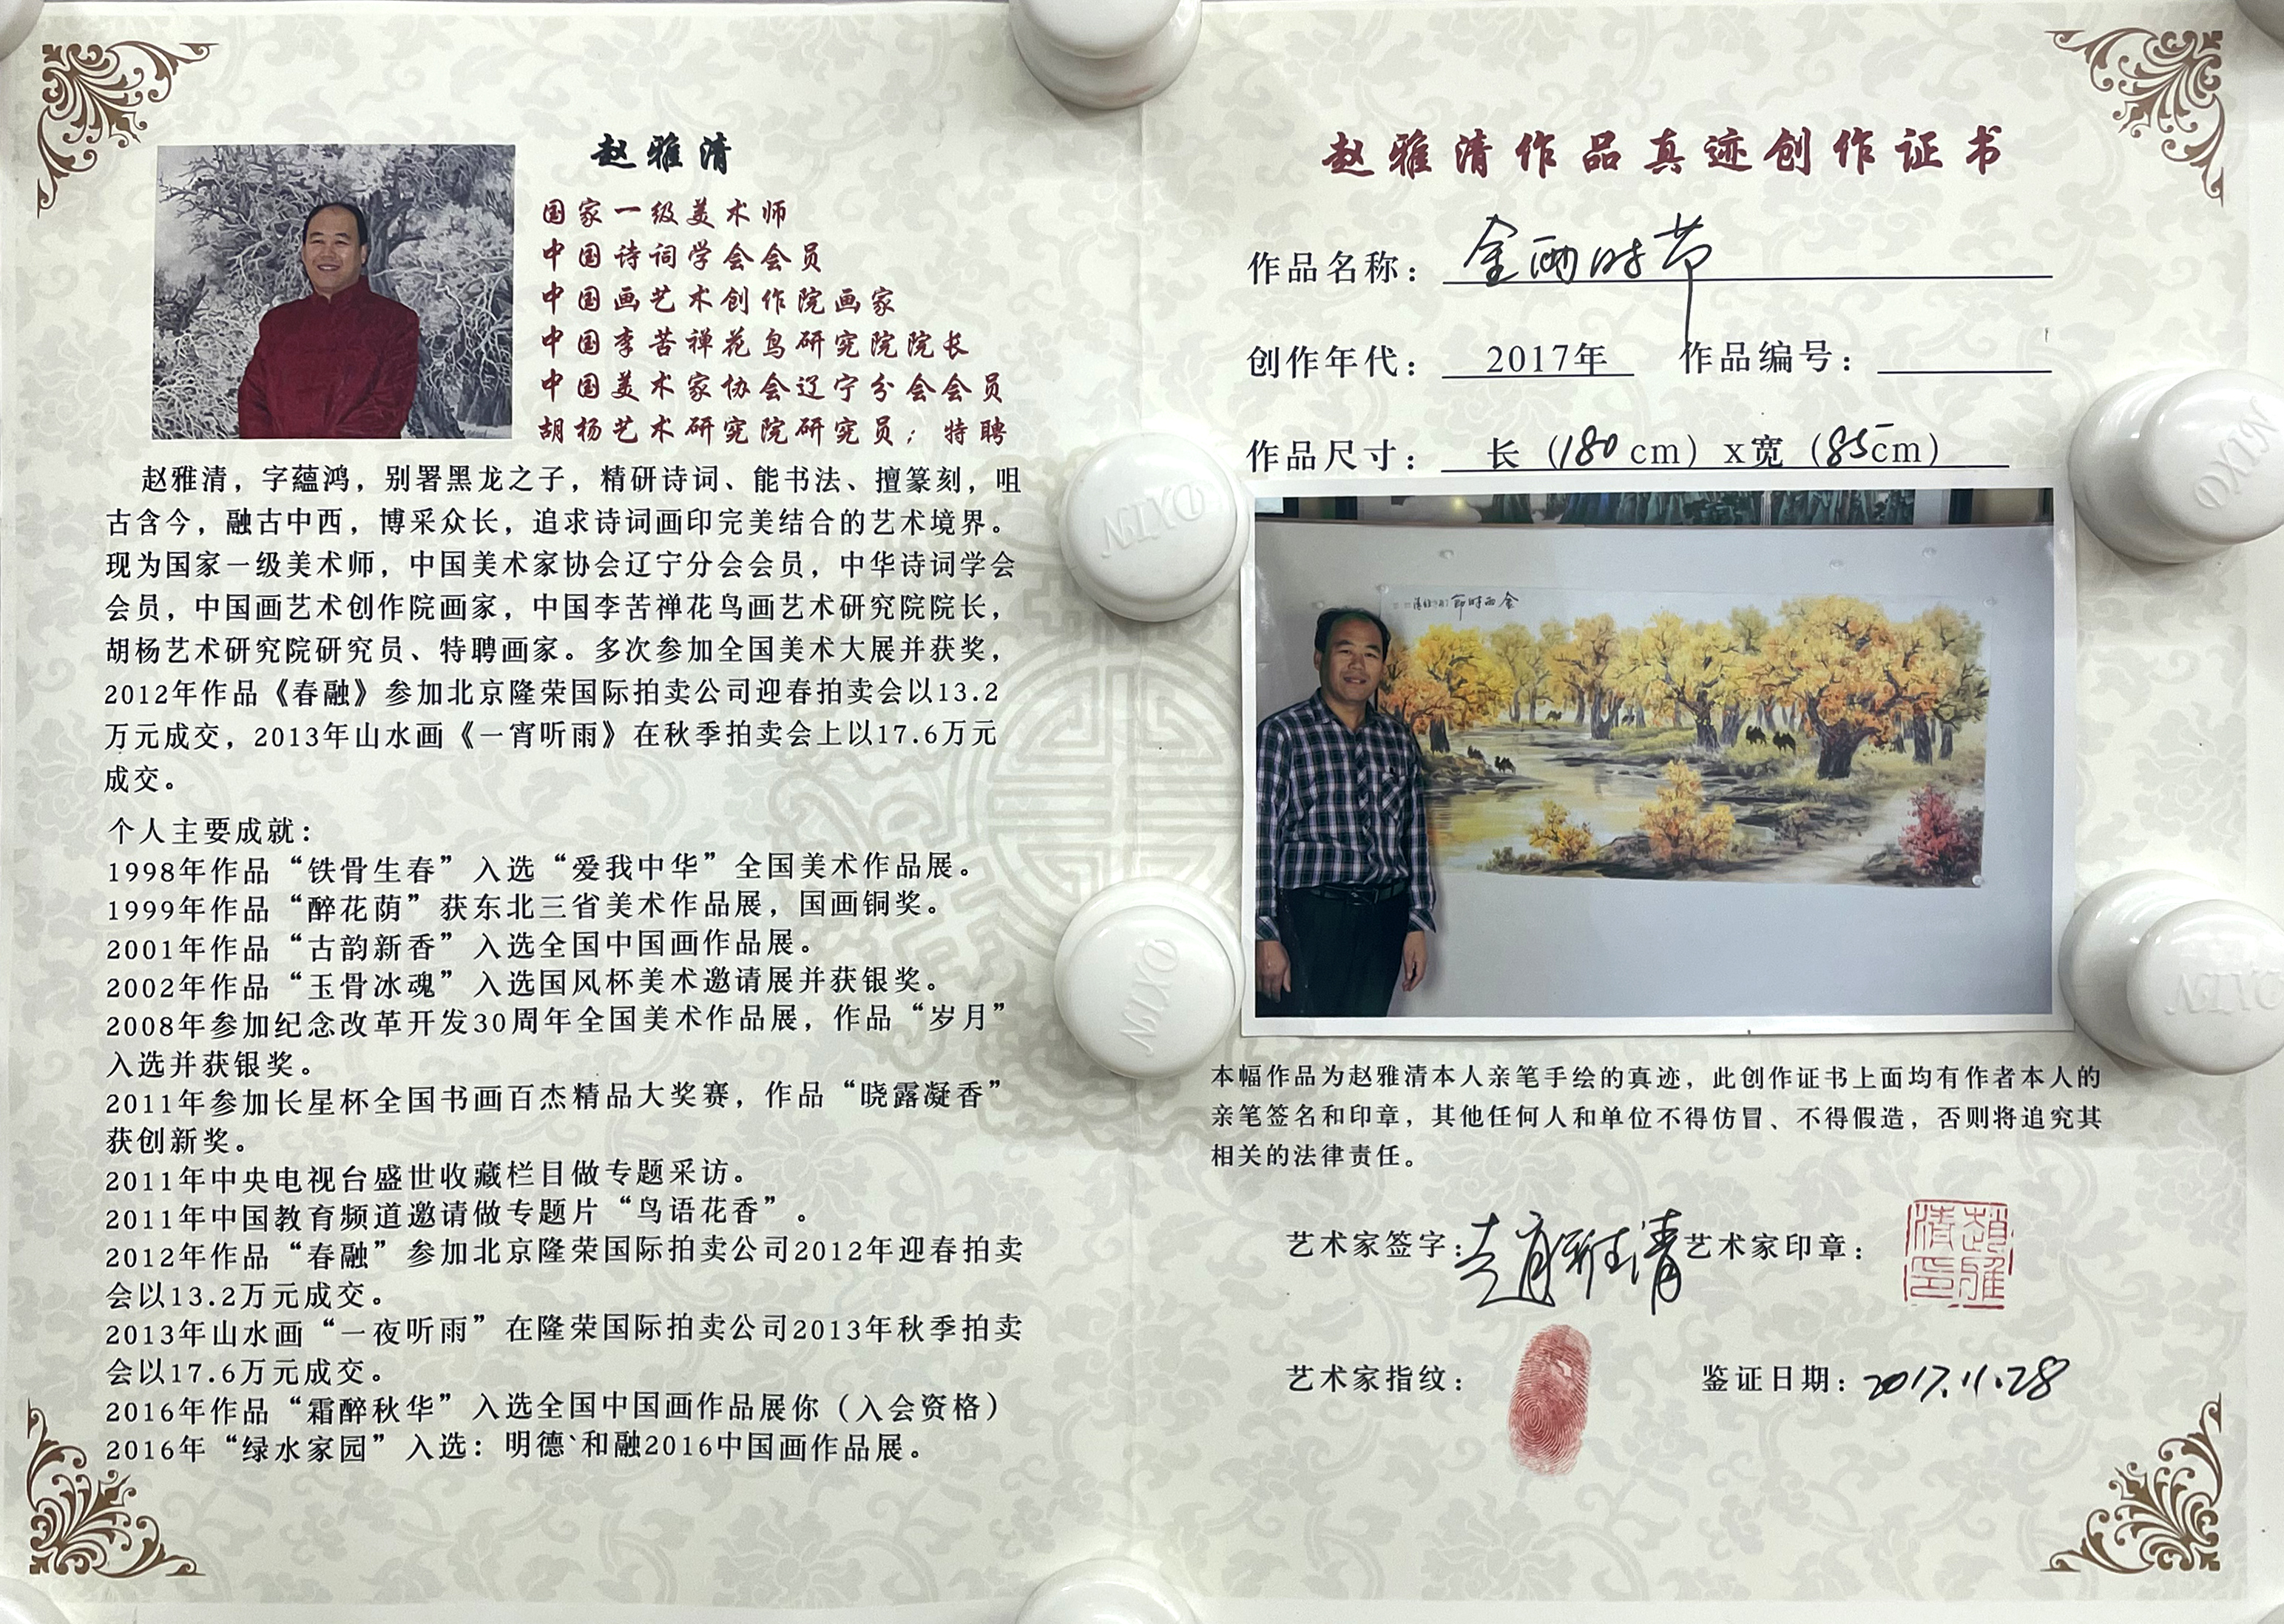 赵雅清
国家一级美术师
中国诗词学会会员
中国画艺术创作院画家
中国李苦禅花鸟研究院院长
中国美术家协会辽宁分会会员
胡杨艺术研究院研究员；特聘
赵雅清，字蕴鸿，别署黑龙之子，精研诗词、能书法、擅篆刻，咀
古含今，融古中西，博采众长，追求诗词画印完美结合的艺术境界。
现为国家一级美术师，中国美术家协会辽宁分会会员，中华诗词学会
会员，中国画艺术创作院画家，中国李苦禅花鸟画艺术研究院院长，
胡杨艺术研究院研究员、特聘画家。多次参加全国美术大展并获奖，
2012年作品《春融》参加北京隆荣国际拍卖公司迎春拍卖会以13.2
万元成交，2013年山水画《一宵听雨》在秋季拍卖会上以17.6万元
成交。
个人主要成就：
1998年作品“铁骨生春”入选“爱我中华”全国美术作品展。
1999年作品“醉花荫”获东北三省美术作品展，国画铜奖。
2001年作品“古韵新香”入选全国中国画作品展。
2002年作品“玉骨冰魂”入选国风杯美术邀请展并获银奖。
2008年参加纪念改革开发30周年全国美术作品展，作品“岁月”
入选并获银奖。
2011年参加长星杯全国书画百杰精品大奖赛，作品“晓露凝香”
获创新奖。
2011年中央电视台盛世收藏栏目做专题采访。
2011年中国教育频道邀请做专题片“鸟语花香”。
2012年作品“春融”参加北京隆荣国际拍卖公司2012年迎春拍卖
会以13.2万元成交。
2013年山水画“一夜听雨”在隆荣国际拍卖公司2013年秋季拍卖
会以17.6万元成交。
2016年作品“霜醉秋华”入选全国中国画作品展你（入会资格）
2016年“绿水家园”入选：明德`和融2016中国画作品展。
赵雅清作品真迹创作证书
作品名称：金西时节
创作年代：2017年 作品编号：
作品尺寸：长（180cm）x宽（85cm）
金西时節
本幅作品为赵雅清本人亲笔手绘的真迹，此创作证书上面均有作者本人的
亲笔签名和印章，其他任何人和单位不得仿冒、不得假造，否则将追究其
相关的法律责任。
艺术家签字：趙雅清 艺术家印章：
趙雅清印
艺术家指纹： 鉴证日期：2017.11.28
NIYO
NIYO
NIYO
NIYO